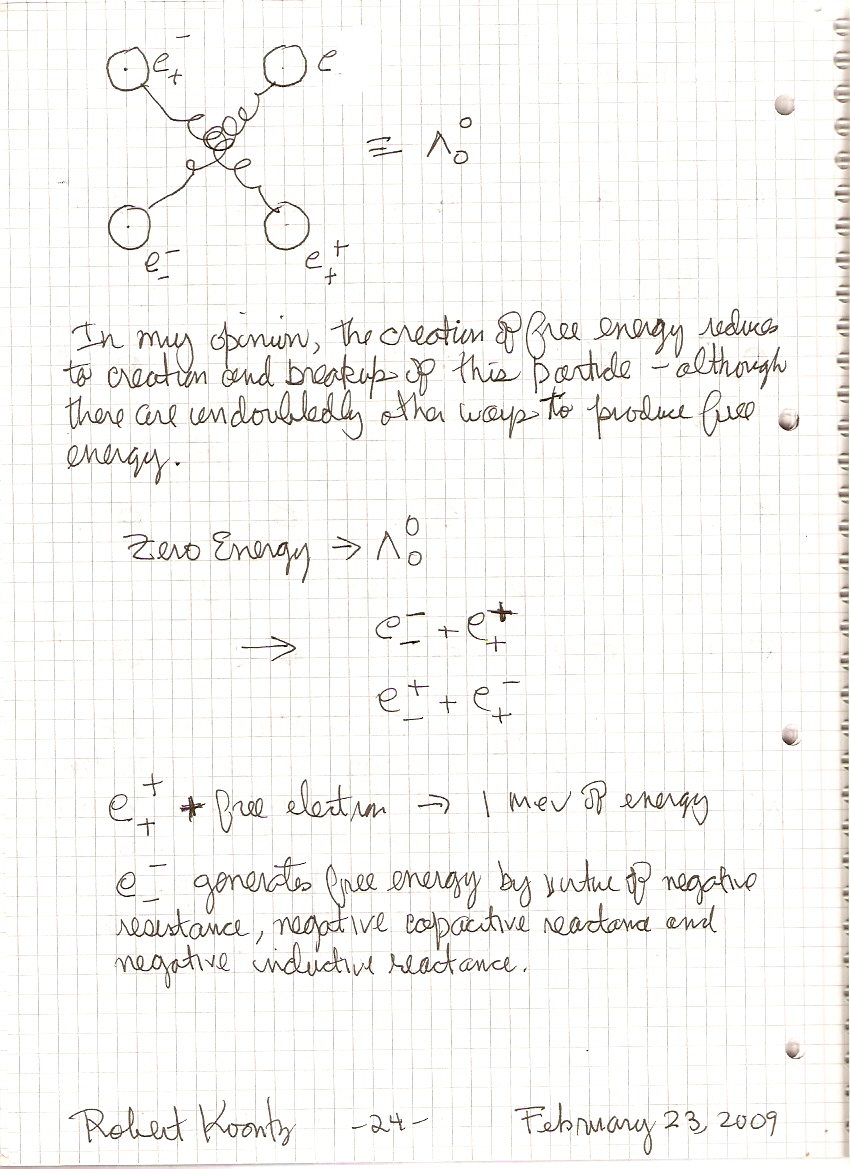 e₊⁻ e
≡ Λ₀⁰
e₋⁻ e₊⁺
In my opinion, the creation of free energy reduces
to creation and breakup of this particle - although
there are undoubtedly other ways to produce free
energy.
Zero Energy → Λ₀⁰
→ e₋⁻ + e₊⁺
e₋⁺ + e₊⁻
e₊⁺ + free electron → 1 mev of energy
e₋⁻ generates free energy by virtue of negative
resistance, negative capacitive reactance and
negative inductive reactance.
Robert Koontz -24- February 23, 2009